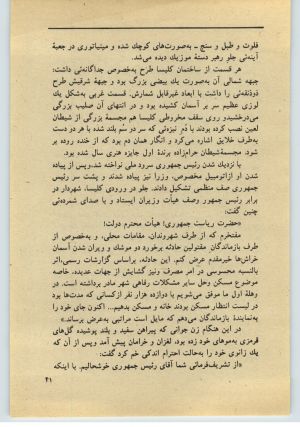 فلوت و طبل و سنج ـ به‌صورت‌های کوچك شده و مینیاتوری در جعبهٔ
آینه‌ئی جلو رهبر دستهٔ موزیك دیده می‌شد.
هر قسمت از ساختمان کلیسا طرح به‌خصوص جداگانه‌ئی داشت:
جبهه شمالی آن به‌صورت یك بیضی بزرگ بود و جبههٔ شرقیش طرح
ذوذنقه‌ئی را داشت با ابعاد غیرقابل شمارش. قسمت غربی به‌شکل یك
لوزی عظیم سر بر آسمان کشیده بود و در انتهای آن صلیب بزرگی
می‌درخشید روی سقف مخروطی کلیسا هم مجسمهٔ بزرگی از شیطان
لعین نصب کرده بودند با دُم نیزه‌ئی که سر دو سُم بلند شده با هر دو دست
به‌طرف خلایق اشاره می‌کرد و انگار همان دم بود که از خنده روده بر
شود. مجسمهٔ شیطان حرام‌زاده برندهٔ اول جایزه هنری سال شده بود.
با نزدیك شدن رئیس جمهوری سرود ملی نواخته شد، و پس از پیاده
شدن او ازاتومبیل مخصوص، وزرا نیز پیاده شدند و پشت سر رئیس
جمهوری صف منظمی تشکیل دادند. جلو در ورودی کلیسا، شهردار در
برابر رئیس جمهور وصف هیأت وزیران ایستاد و با صدای شمرده‌ئی
چنین گفت:
«حضرت ریاست جمهوری! هیأت محترم دولت!
مفتخرم که از طرف شهروندان، مقامات محلی، و به‌خصوص از
طرف بازماندگان مقتولین حادثه برخورد دو موشك و ویران شدن آسمان
خراش‌ها خیرمقدم عرض کنم. این حادثه، براساس گزارشات رسمی، اثر
بالنسبه محسوسی در امر مصرف ونیز گشایش از جهات عدیده، خاصه
موضوع مسکن وحل سایر مشکلات رفاهی شهر مادر برداشته است. در
وهلهٔ اول ما موفق می‌شویم با دوازده هزار نفر ازکسانی که مدت‌ها بود
در لیست انتظار مسکن بودند خانه و مسکن بدهیم... اکنون جای خود را
به‌نمایندهٔ بازماندگان می‌دهم که مایل است مراتبی به‌عرض برساند.»
در این هنگام زن جوانی که پیراهن سفید و بلند پوشیده گل‌های
قرمزی به‌موهای خود زده بود، لغزان و خرامان پیش آمد وپس از آن که
یك زانوی خود را به‌حالت احترام اندکی خم کرد گفت:
«از تشریف‌فرمائی شما آقای رئیس جمهوری خوشحالیم. با اینکه
۴۱